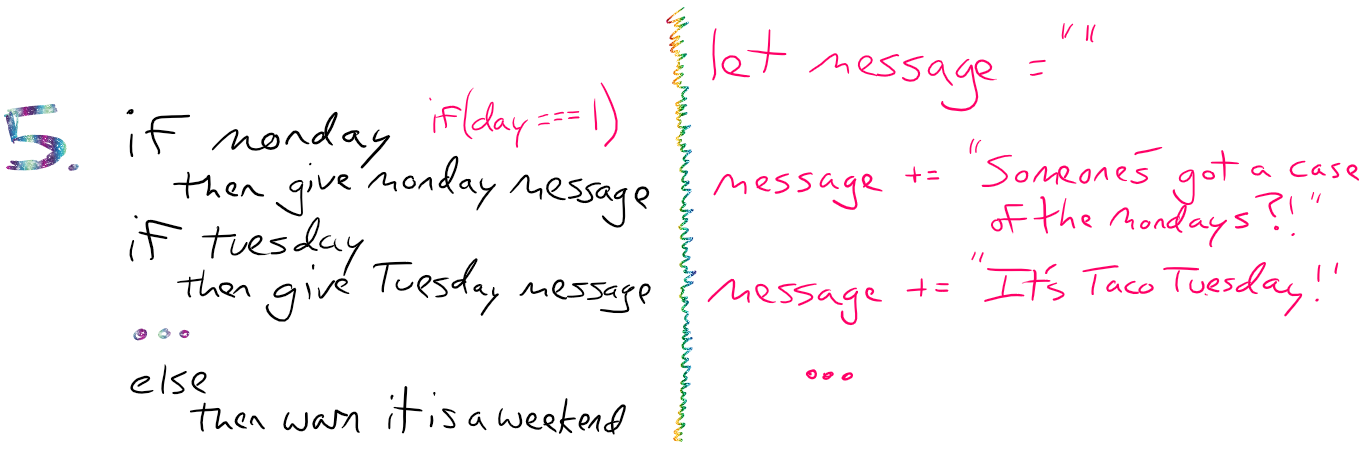 5. if monday if(day === 1)
then give monday message
if tuesday
then give Tuesday message
...
else
then warn it is a weekend
let message = ""
message += "Someone's got a case
of the mondays?!"
message += "It's Taco Tuesday!"
...